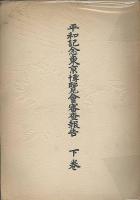 平和記念東京博覽會審査報告 下卷